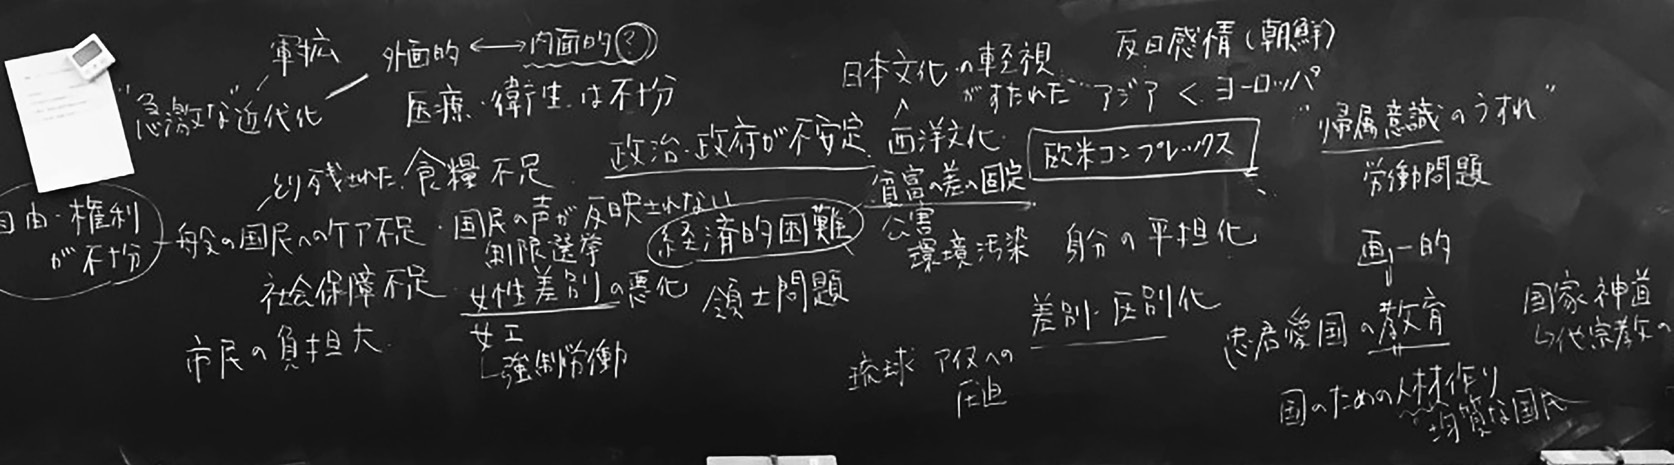 軍拡
外面的 ⟷ 内面的(?)
"急激な"近代化
医療・衛生は不十分
とり残された 食糧不足
自由・権利
が不十分
一般の国民へのケア不足・国民の声が反映されない
制限選挙
社会保障不足
女性差別の悪化
女工
└強制労働
市民の負担大
政治・政府が不安定
経済的困難
領土問題
日本文化の軽視
がすたれた
∧
西洋文化
アジア < ヨーロッパ
反日感情(朝鮮)
欧米コンプレックス
貧富の差の固定
公害
環境汚染
身分の平坦化
差別・区別化
琉球 アイヌへの
圧迫
"帰属意識のうすれ"
労働問題
画一的
忠君愛国の教育
国のための人材作り
均質な国民
国家神道
└他宗教の